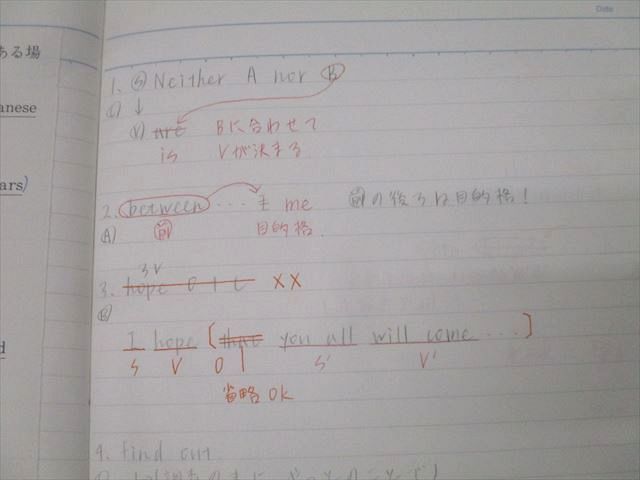 ある場
anese
ars)
d
Date
1. Ⓢ Neither A nor Ⓑ
↓
Ⓥ are Bに合わせて
is Vが決まる.
2. between ... I me 前の後ろは目的格!
(A) 前 目的格.
3V
3. hope O t C ××
I hope [that you all will come ...]
S V O S' V'
省略OK
4. find out